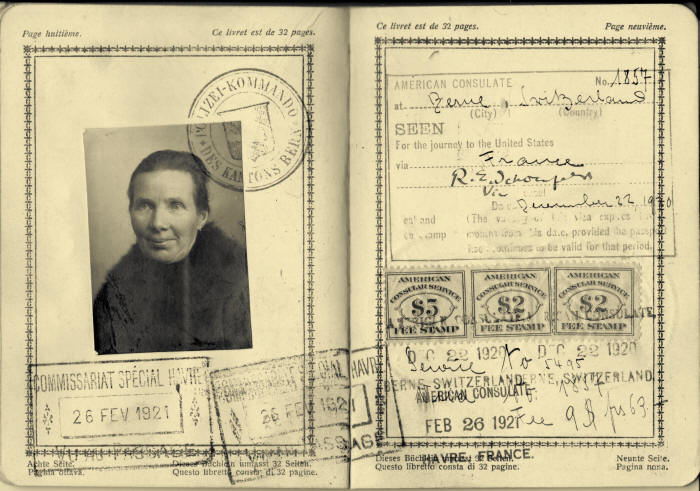 Page huitième. Ce livret est de 32 pages.
POLIZEI-KOMMANDO
DES KANTONS BERN
COMMISSARIAT SPÉCIAL HAVRE
26 FEV 1921
SPÉCIAL HAVRE
26 FEV 1921
Achte Seite. Dieses Büchlein umfasst 32 Seiten.
Pagina ottava. Questo libretto consta di 32 pagine.
Ce livret est de 32 pages. Page neuvième.
AMERICAN CONSULATE No. 1857
at Berne, Switzerland
(City) (Country)
SEEN
For the journey to the United States
via France
December 22, 1920
(The validity of this visa expires
months from this date, provided the passport
continues to be valid for that period.
AMERICAN CONSULAR SERVICE $5 FEE STAMP
AMERICAN CONSULAR SERVICE $2 FEE STAMP
AMERICAN CONSULAR SERVICE $2 FEE STAMP
DEC 22 1920 DEC 22 1920
Service No 5495
BERNE, SWITZERLAND BERNE, SWITZERLAND
AMERICAN CONSULATE
FEB 26 1921 Fee 9$
HAVRE, FRANCE.
Dieses Büchlein umfasst 32 Seiten. Neunte Seite.
Questo libretto consta di 32 pagine. Pagina nona.